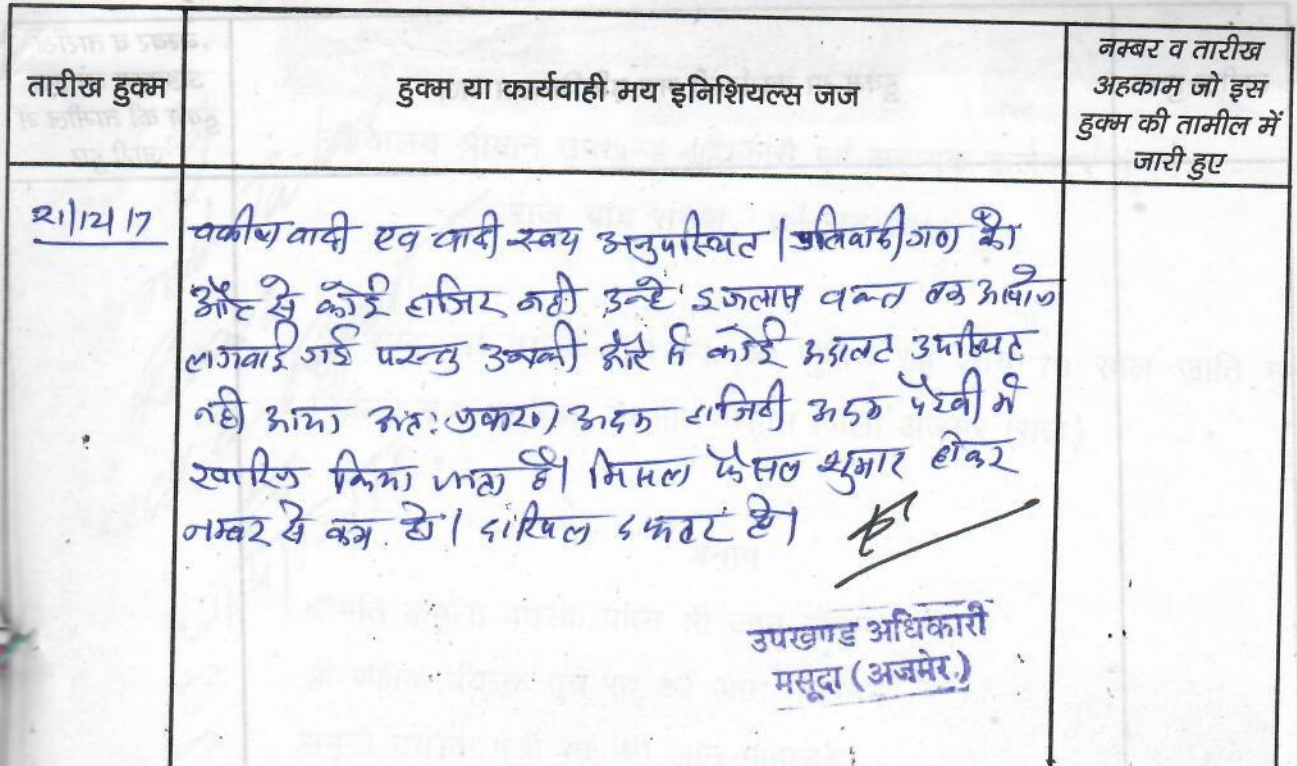 तारीख हुक्म
हुक्म या कार्यवाही मय इनिशियल्स जज
नम्बर व तारीख
अहकाम जो इस
हुक्म की तामील में
जारी हुए
21/12/17
वकील वादी एव वादी स्वय अनुपस्थित | प्रतिवादीगण की
और से कोई हाजिर नही उन्हे इजलास वक्त तक आवाज
लगवाई गई परन्तु उनकी और से कोई अदालट उपस्थित
नही आया अत: प्रकरण अदम हाजिरी अदम पैरवी मे
खारिज किया जाता है। मिसल फैसल शुमार होकर
नम्बर से कम हो। दाखिल दफ्तर हो।
उपखण्ड अधिकारी
मसूदा (अजमेर.)